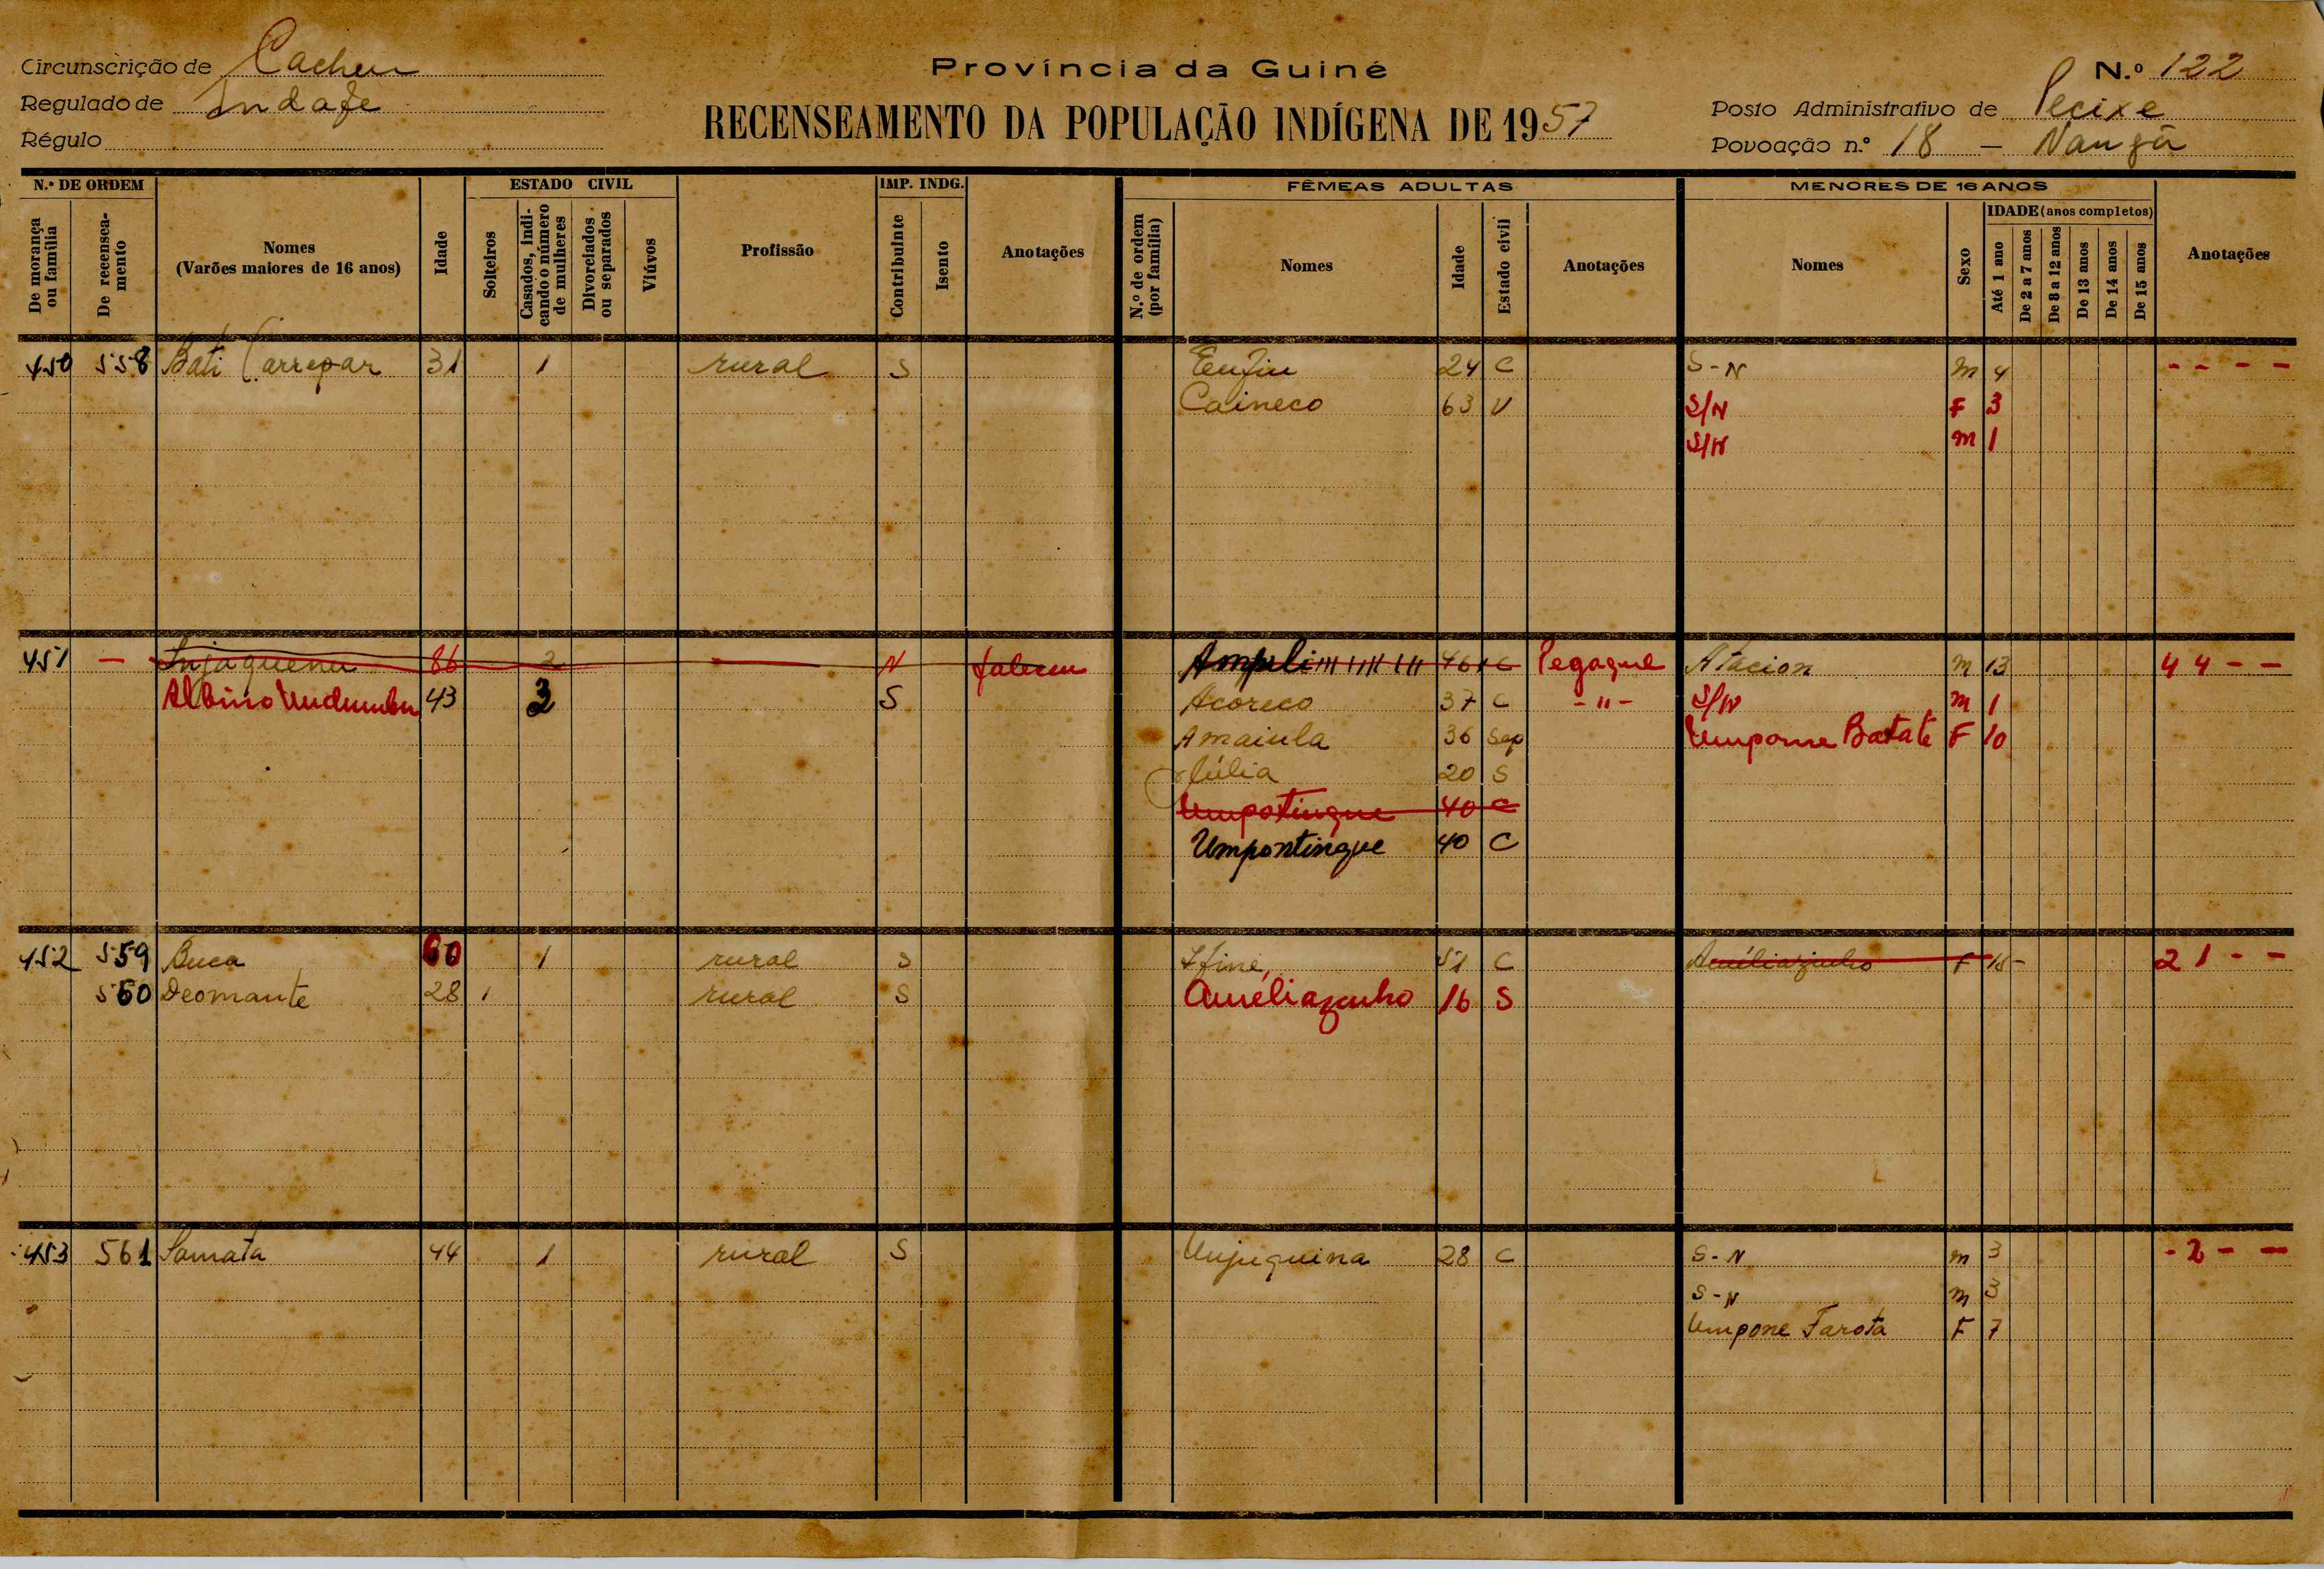 Circunscrição de Cacheu
Província da Guiné
N.º 122
Regulado de Indafe
RECENSEAMENTO DA POPULAÇÃO INDÍGENA DE 1957
Posto Administrativo de Pecixe
Régulo
Povoação n.º 18 - Nangã
N.º DE ORDEM
De morança ou família
De recenseamento
Nomes
(Varões maiores de 16 anos)
Idade
ESTADO CIVIL
Solteiros
Casados, indicando o número de mulheres
Divorciados ou separados
Viúvos
Profissão
IMP. INDG.
Contribuinte
Isento
Anotações
FÊMEAS ADULTAS
N.º de ordem (por família)
Nomes
Idade
Estado civil
Anotações
MENORES DE 16 ANOS
Nomes
Sexo
IDADE (anos completos)
Até 1 ano
De 2 a 7 anos
De 8 a 12 anos
De 13 anos
De 14 anos
De 15 anos
Anotações
450 558 Bati Carrepar 31 1 rural S 24 C S-N M 4 - - - -
Caineco 63 V S/N F 3
S/N M 1
451 - Injaquenu 86 2 N faleceu Ampuli 46 C Pegaque Atacion M 13 4 4 - -
Albino 43 3 S Acoreco 37 C -"- S/N M 1
Amaiula 36 Sep Umpone Batate F 10
Júlia 20 S
Umpotingue 40 C
Umpontingue 40 C
452 559 Buca 60 1 rural S Ifine 51 C Auréliazinho F 15 - 2 1 - -
560 Deomante 28 1 rural S Auréliazinho 16 S
453 561 Samata 44 1 rural S Unjuquina 28 C S-N M 3 - 2 - -
S-N M 3
Umpone Farota F 7